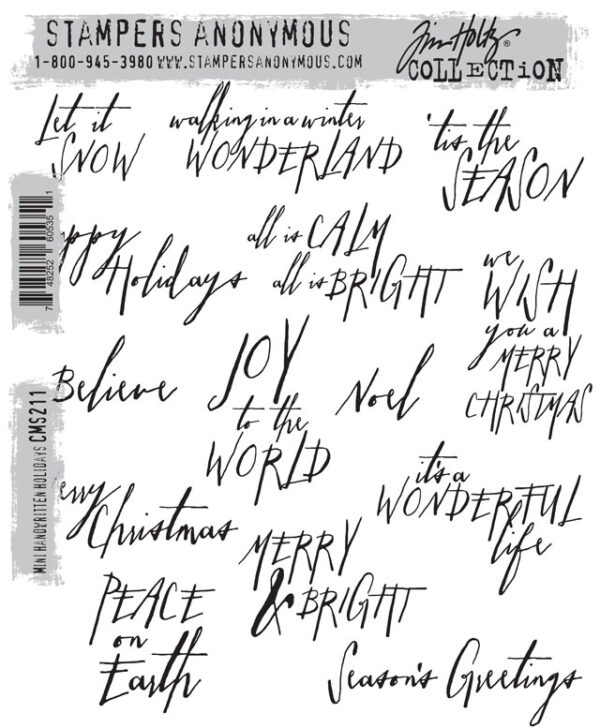 STAMPERS ANONYMOUS
1-800-945-3980 WWW.STAMPERSANONYMOUS.COM
Tim Holtz®
COLLECTiON
Let it
SNOW
walking in a winter
WONDERLAND
'tis the
SEASON
7 48252 60535 1
ppy
Holidays
all is CALM
all is BRIGHT
we
WISH
you a
MERRY
CHRISTMAS
Believe
JOY
to the
WORLD
Noel
MINI HANDWRITTEN HOLIDAYS CMS211
erry
Christmas
it's a
WONDERFUL
life
MERRY
& BRIGHT
PEACE
on
Earth
Season's Greetings